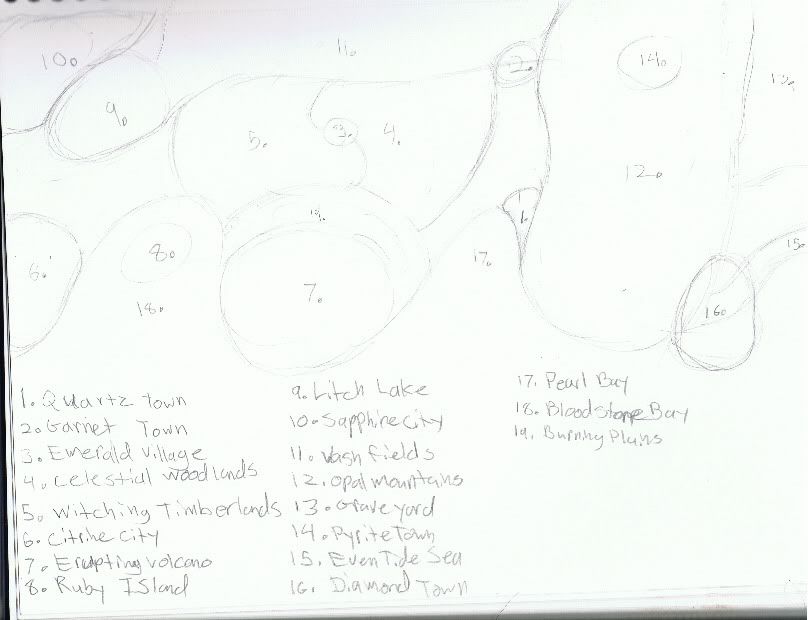 10.
11.
2.
14.
13.
9.
5.
3.
4.
12.
1.
19.
15.
6.
8.
17.
7.
18.
16.
1. Quartz Town
2. Garnet Town
3. Emerald Village
4. Celestial Woodlands
5. Witching Timberlands
6. Citrine City
7. Erupting volcano
8. Ruby Island
9. Litch Lake
10. Sapphire city
11. Vash fields
12. Opal mountains
13. Graveyard
14. Pyrite Town
15. Even Tide Sea
16. Diamond Town
17. Pearl Bay
18. Bloodstone Bay
19. Burning Plains